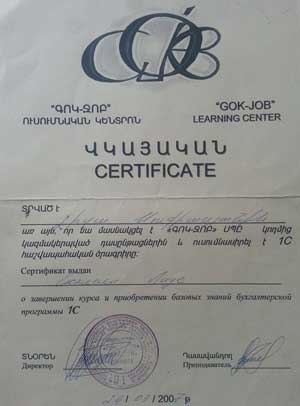 "ԳՈԿ-ՋՈԲ"
ՈՒՍՈՒՄՆԱԿԱՆ ԿԵՆՏՐՈՆ
"GOK-JOB"
LEARNING CENTER
ՎԿԱՅԱԿԱՆ
CERTIFICATE
ՏՐՎԱԾ Է
առ այն, որ նա մասնակցել է «ԳՈԿ-ՋՈԲ» ՍՊԸ կողմից
կազմակերպված դասընթացներին և ուսումնասիրել է 1C
հաշվապահական ծրագիրը:
Сертификат выдан
о завершении курса и приобретении базовых знаний бухгалтерской
программы 1С
ՏՆՕՐԵՆ
Директор
Դասավանդող
Преподаватель